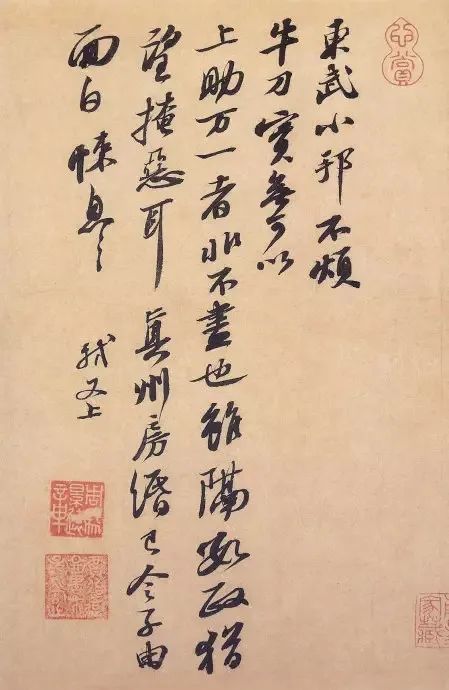 東武小邦不煩
牛刀實無可以
上助万一者非不盡也雖隔數政猶
望掩惡耳眞州房緡已令子由
面白悚息〻
軾又上